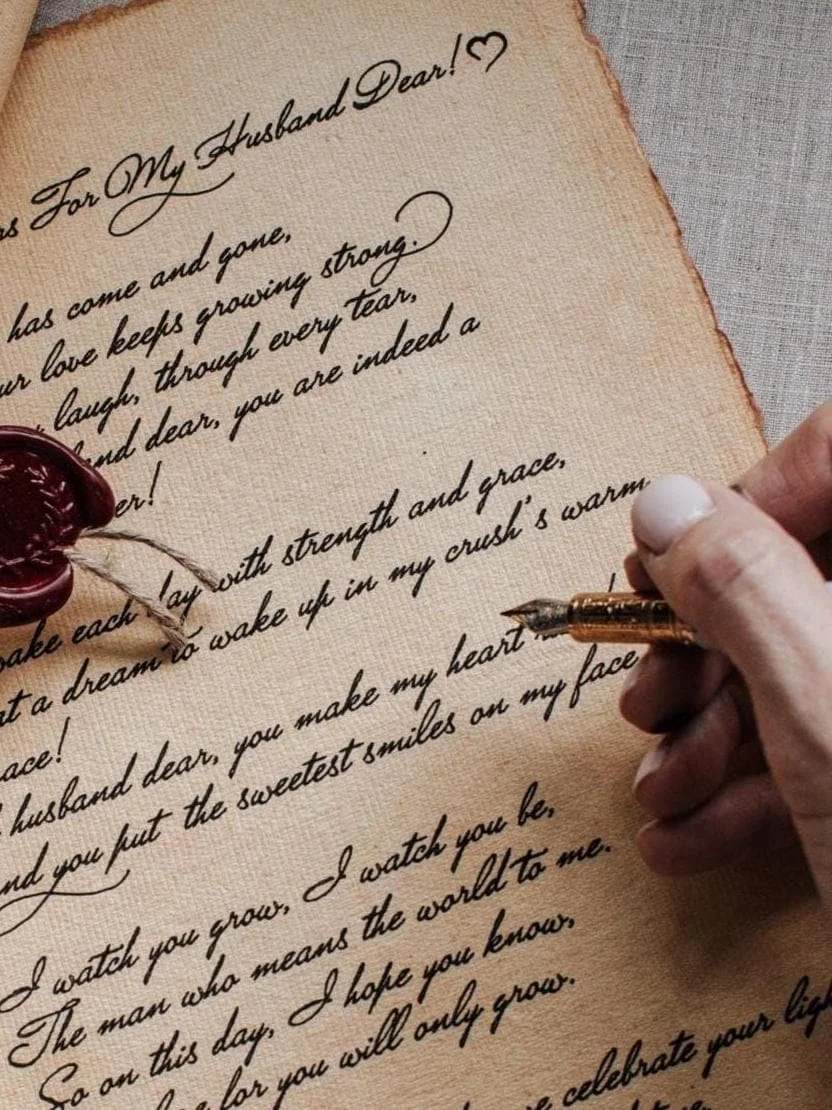 For My Husband Dear!
has come and gone,
love keeps growing strong.
laugh, through every tear,
dear, you are indeed a
each with strength and grace,
a dream to wake up in my crush's warm
husband dear, you make my heart
you put the sweetest smiles on my face
I watch you grow, I watch you be,
The man who means the world to me.
So on this day, I hope you know,
for you will only grow.
celebrate your